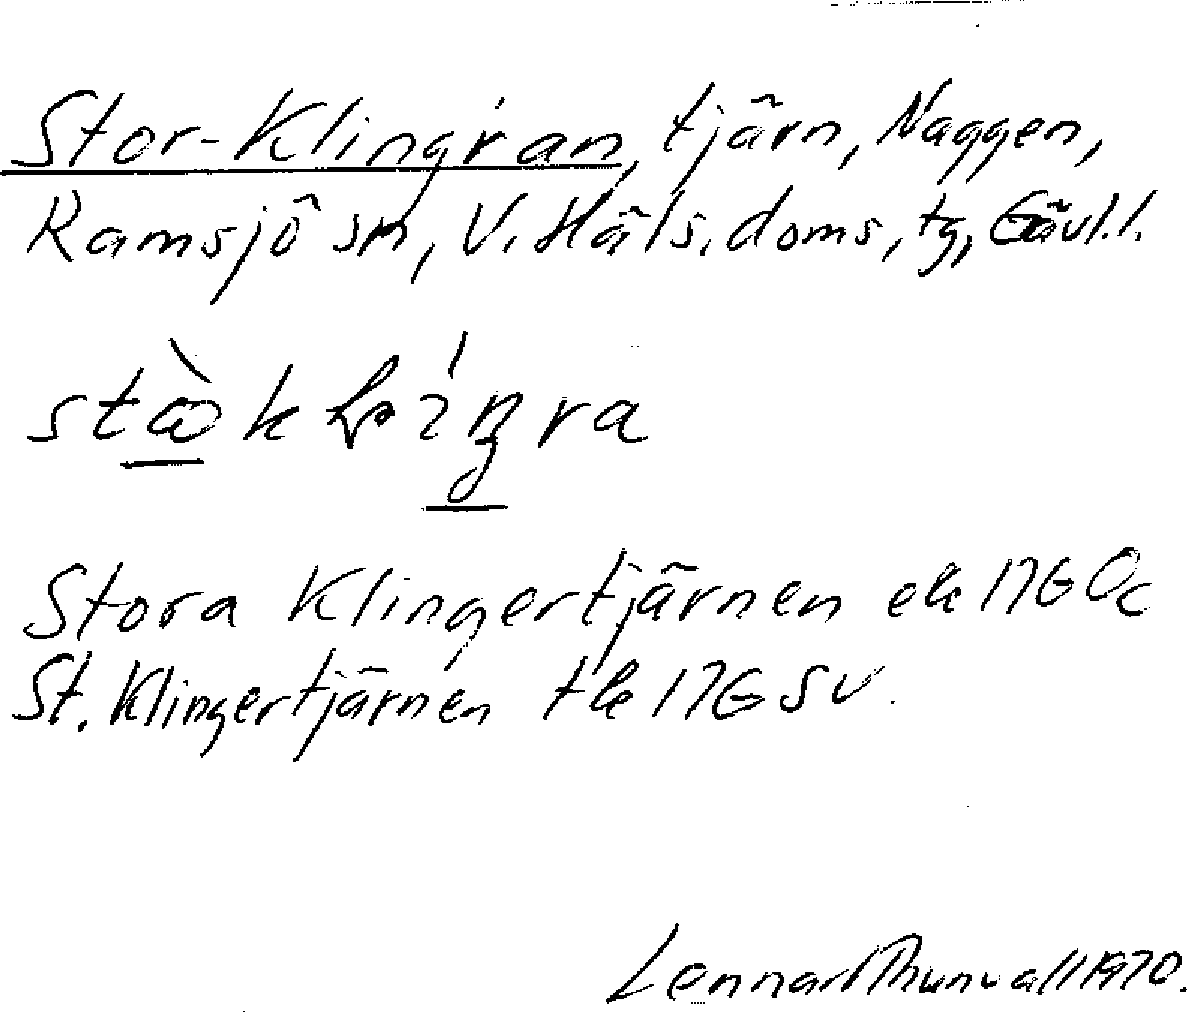 Stor-Klingran, tjärn, Naggen,
Ramsjö sn, V. Häls. doms, tg, Gävl. l.
Stora Klingertjärnen ek 17G 0c
St. Klingertjärnen tk 17G SV.
Lennart Thunvall 1970.